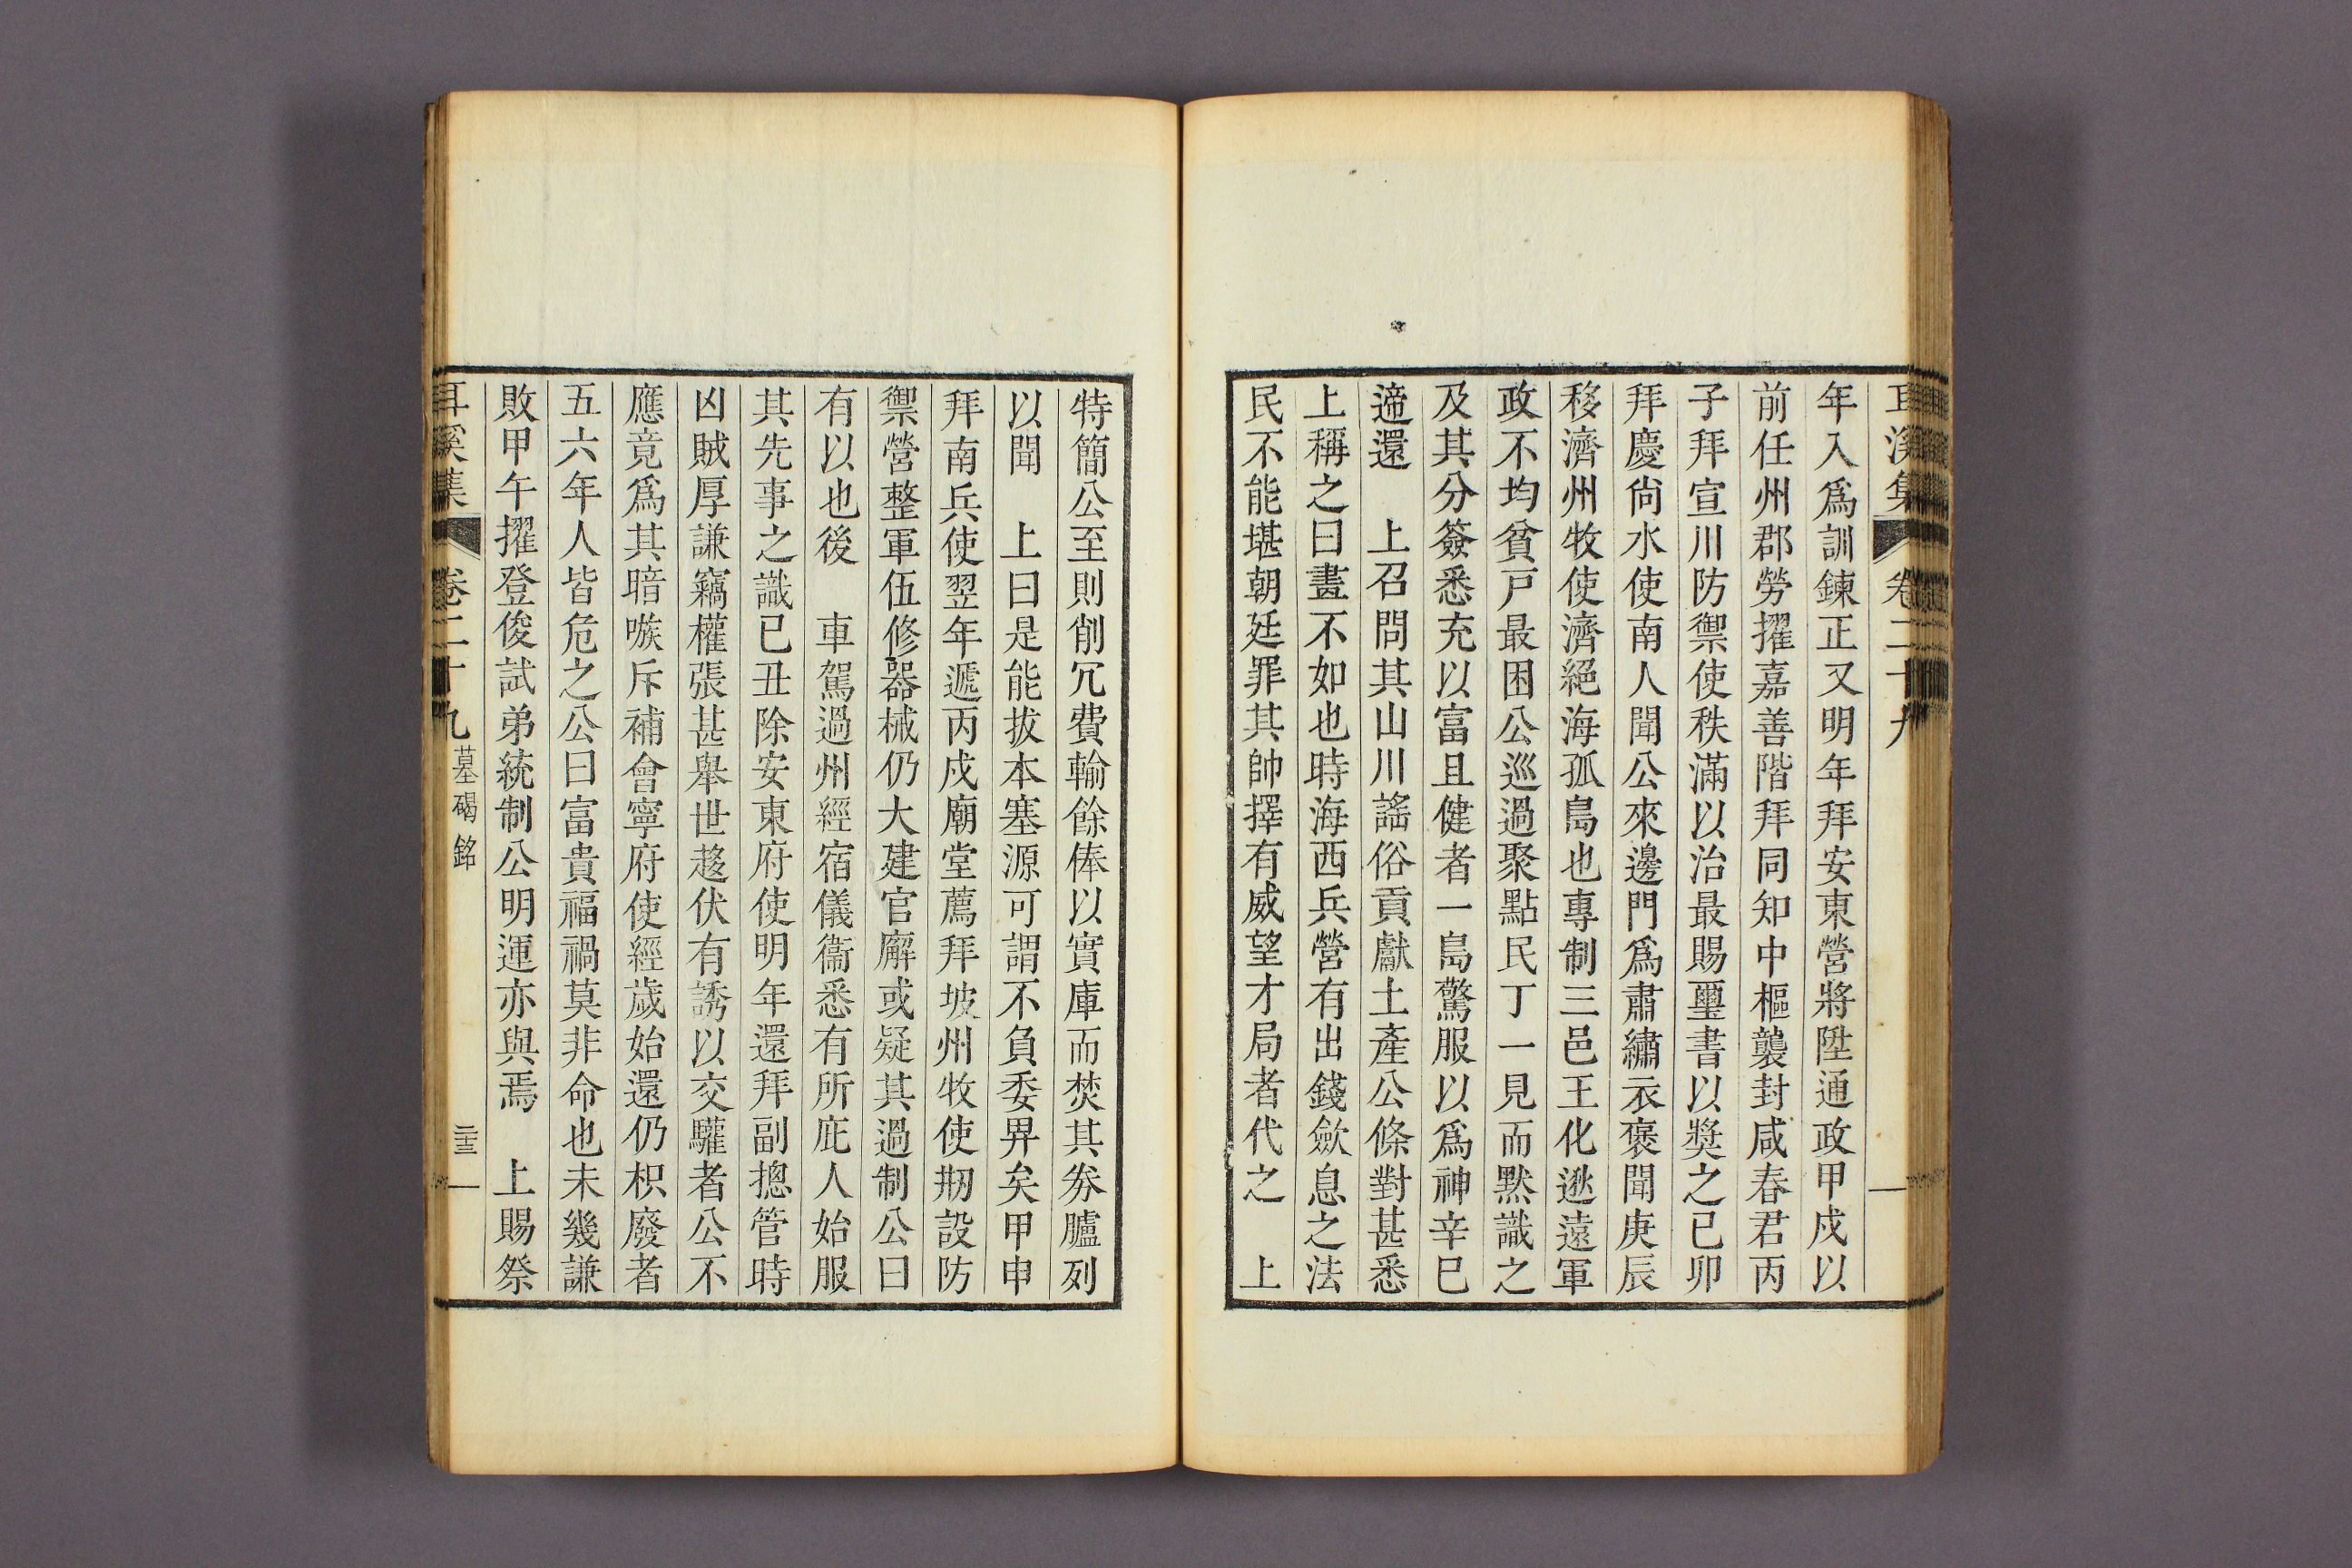 耳溪集 卷二十九
年入爲訓鍊正又明年拜安東營將陞通政甲戌以
前任州郡勞擢嘉善階拜同知中樞襲封咸春君丙
子拜宣川防禦使秩滿以治最賜璽書以奬之已卯
拜慶尙水使南人聞公來邊門爲肅繡衣褒聞庚辰
移濟州牧使濟絕海孤島也專制三邑王化逖遠軍
政不均貧戶最困公巡過聚點民丁一見而默識之
及其分簽悉充以富且健者一島驚服以爲神辛巳
遆還 上召問其山川謠俗貢獻土產公條對甚悉
上稱之曰畫不如也時海西兵營有出錢斂息之法
民不能堪朝廷罪其帥擇有威望才局者代之 上
特簡公至則削冗費輸餘俸以實庫而焚其券臚列
以聞 上曰是能拔本塞源可謂不負委畀矣甲申
拜南兵使翌年遞丙戌廟堂薦拜坡州牧使刱設防
禦營整軍伍修器械仍大建官廨或疑其過制公曰
有以也後 車駕過州經宿儀衞悉有所庇人始服
其先事之識已丑除安東府使明年還拜副摠管時
凶賊厚謙竊權張甚舉世趍伏有誘以交驩者公不
應竟爲其暗嗾斥補會寧府使經歲始還仍枳廢者
五六年人皆危之公曰富貴福禍莫非命也未幾謙
敗甲午擢登俊試弟統制公明運亦與焉 上賜祭
耳溪集 卷二十九 墓碣銘 二十三